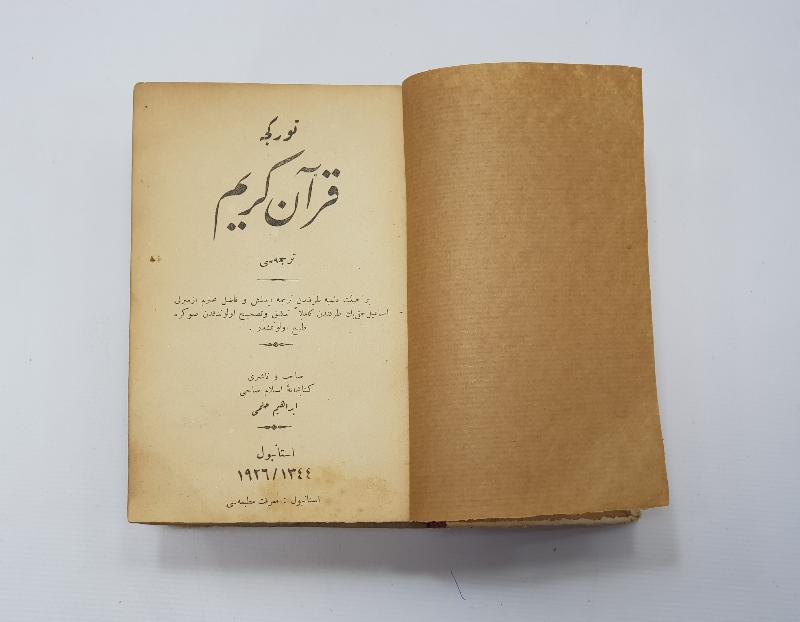 تورکجه
قرآن کریم
ترجمه‌سی
بر هیئت علمیه طرفندن ترجمه ایدلمش و فاضل محترم ازمیرلی
اسماعیل حقی بك طرفندن کاملاً تدقیق وتصحیح اولوندقدن صوکره
طبع اولونمشدر .
صاحب و ناشری
کتابخانهٔ اسلام صاحبی
ابراهیم حلمی
استانبول
١٩٢٦/١٣٤٤
استانبول : معرفت مطبعه‌سی